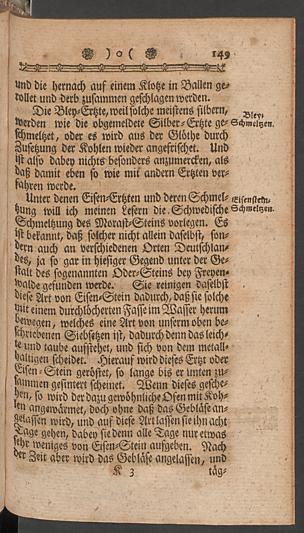 ) o ( 149
und die hernach auf einem Klotze in Ballen ge-
rollet und derb zusammen geschlagen werden.
Die Bley-Ertzte, weil solche meistens silbern,
werden wie die obgemeldete Silber-Ertzte ge-
schmeltzet, oder es wird aus der Glöthe durch
Zusetzung der Kohlen wieder angefrischet. Und
ist also dabey nichts besonders anzumercken, als
daß damit eben so wie mit andern Ertzten ver-
fahren werde.
Bley-
Schmeltzen.
Unter denen Eisen-Ertzten und deren Schmel-
tzung will ich meinen Lesern die Schwedische
Schmeltzung des Morast-Steins vorlegen. Es
ist bekannt, daß solcher nicht allein daselbst, son-
dern auch an verschiedenen Orten Deutschlan-
des, ja so gar in hiesiger Gegend unter der Ge-
stalt des sogenannten Oder-Steins bey Freyen-
walde gefunden werde. Sie reinigen daselbst
diese Art von Eisen-Stein dadurch, daß sie solche
mit einem durchlöcherten Fasse im Wasser herum
bewegen, welches eine Art von unserm oben be-
schriebenen Siebsetzen ist, dadurch denn das leich-
te und taube aufstehet, und sich von dem metall-
haltigen scheidet. Hierauf wird dieses Ertz oder
Eisen-Stein geröstet, so lange bis er unten zu-
sammen gesintert scheinet. Wenn dieses gesche-
hen, so wird der dazu gewöhnliche Ofen mit Koh-
len angewärmet, doch ohne daß das Gebläse an-
gelassen wird, und auf diese Art lassen sie ihn acht
Tage gehen, dabey sie denn alle Tage nur etwas
sehr weniges von Eisen-Stein aufgeben. Nach
der Zeit aber wird das Gebläse angelassen, und
Eisenstein-
Schmeltzen.
K 3 täg-